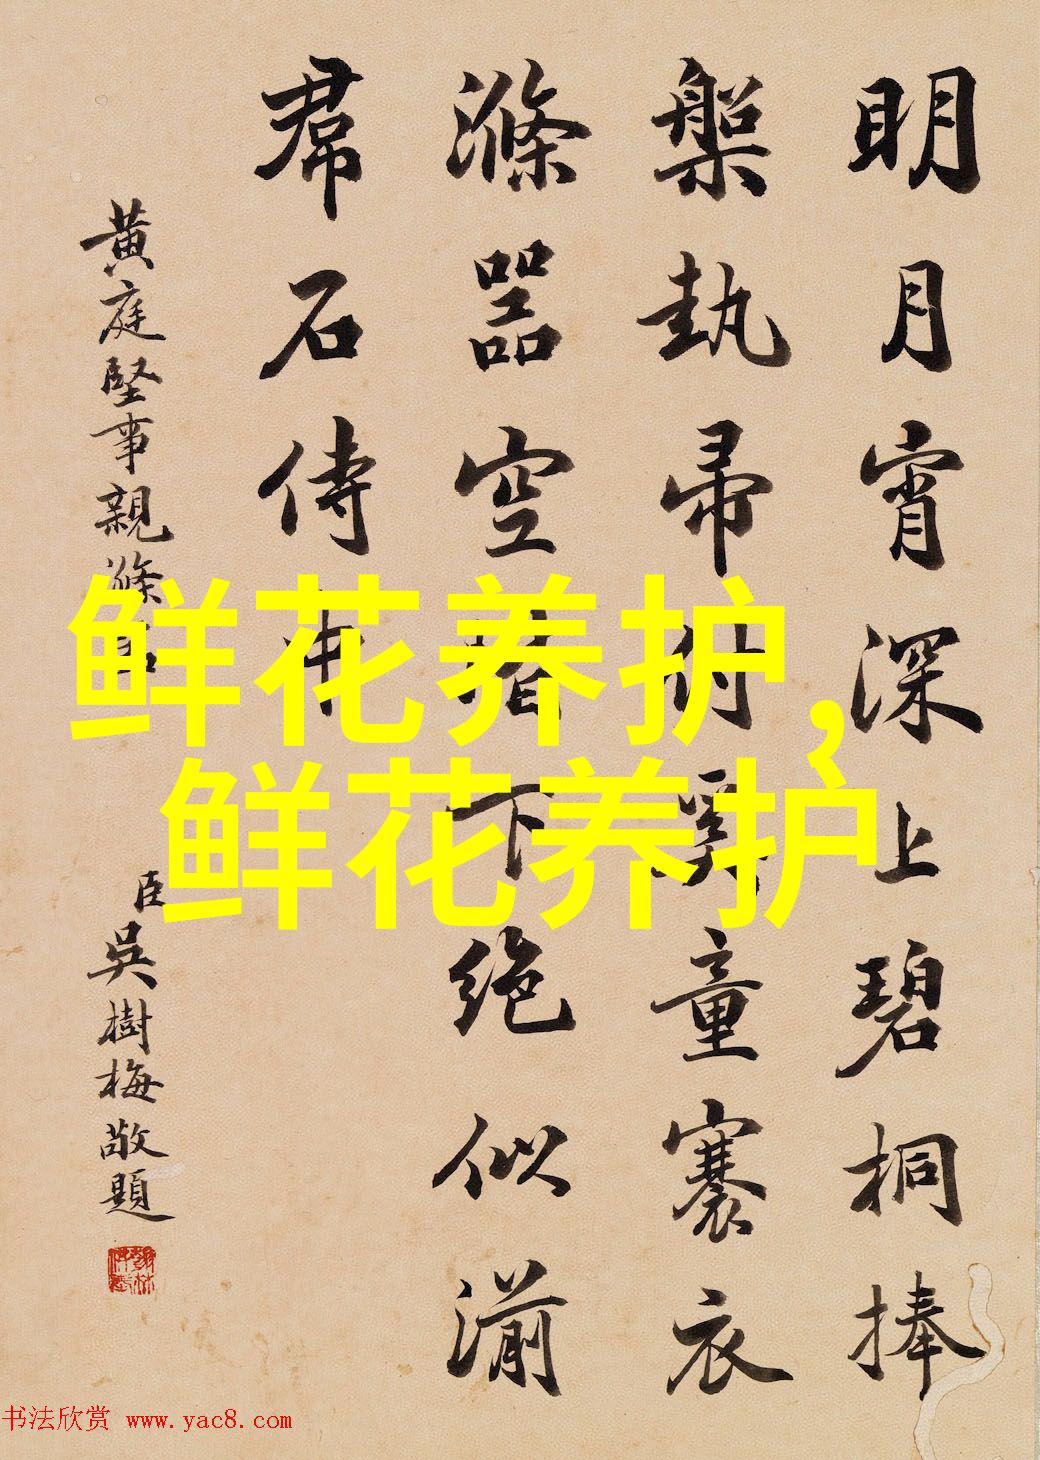 明月宵深上碧桐捧
槃執帚付奚童褰衣
滌器空下絶似湔
帬石侍中
黃庭堅事親滌
臣吳樹梅敬題
鲜花养护，
鲜花养护
书法欣赏 www.yac8.com